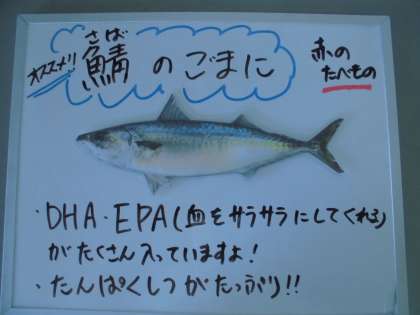 オススメ!!
さば
鯖のごまに
赤の
たべもの
・DHA・EPA(血をサラサラにしてくれる)
がたくさん入っていますよ!
・たんぱくしつがたっぷり!!